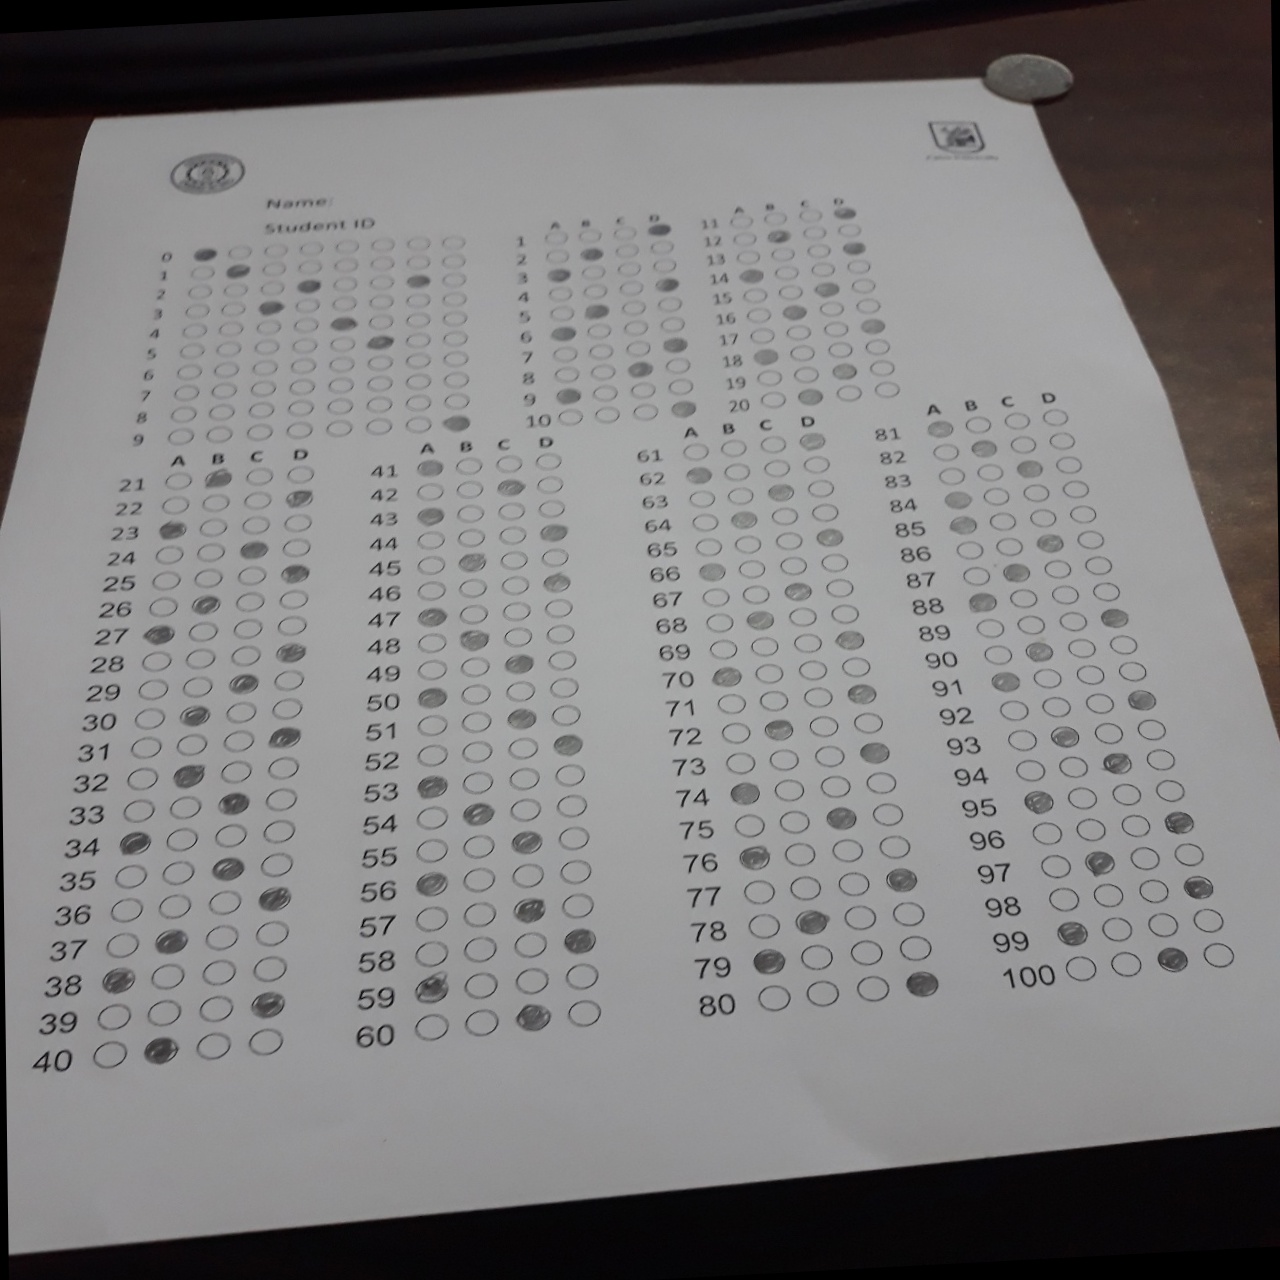 Name:
Student ID
0
1
2
3
4
5
6
7
8
9
A B C D
1
2
3
4
5
6
7
8
9
10
A B C D
11
12
13
14
15
16
17
18
19
20
A B C D
21
22
23
24
25
26
27
28
29
30
31
32
33
34
35
36
37
38
39
40
A B C D
41
42
43
44
45
46
47
48
49
50
51
52
53
54
55
56
57
58
59
60
A B C D
61
62
63
64
65
66
67
68
69
70
71
72
73
74
75
76
77
78
79
80
A B C D
81
82
83
84
85
86
87
88
89
90
91
92
93
94
95
96
97
98
99
100